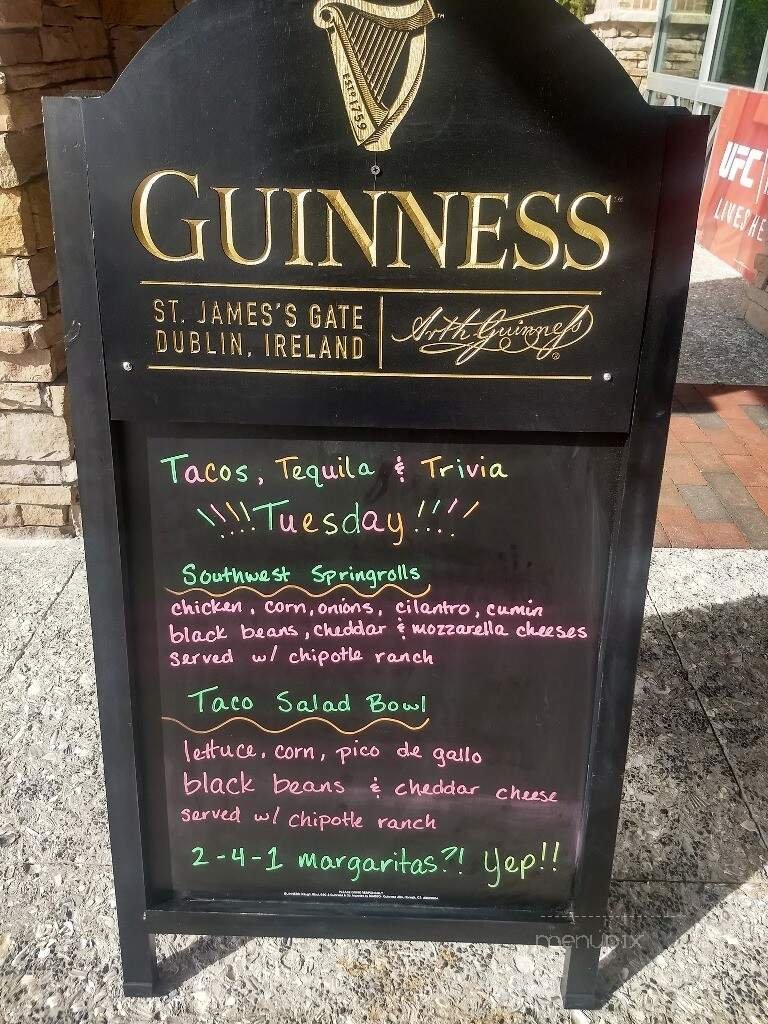 ESTD 1759
GUINNESS
ST. JAMES'S GATE
DUBLIN, IRELAND
Arth Guinness
UFC
LIVES HE
Tacos, Tequila & Trivia
\\!!!Tuesday!!!//
Southwest Springrolls
chicken, corn, onions, cilantro, cumin
black beans, cheddar & mozzarella cheeses
served w/ chipotle ranch
Taco Salad Bowl
lettuce, corn, pico de gallo
black beans & cheddar cheese
served w/ chipotle ranch
2-4-1 margaritas?! Yep!!
PLEASE DRINK RESPONSIBLY
menupix